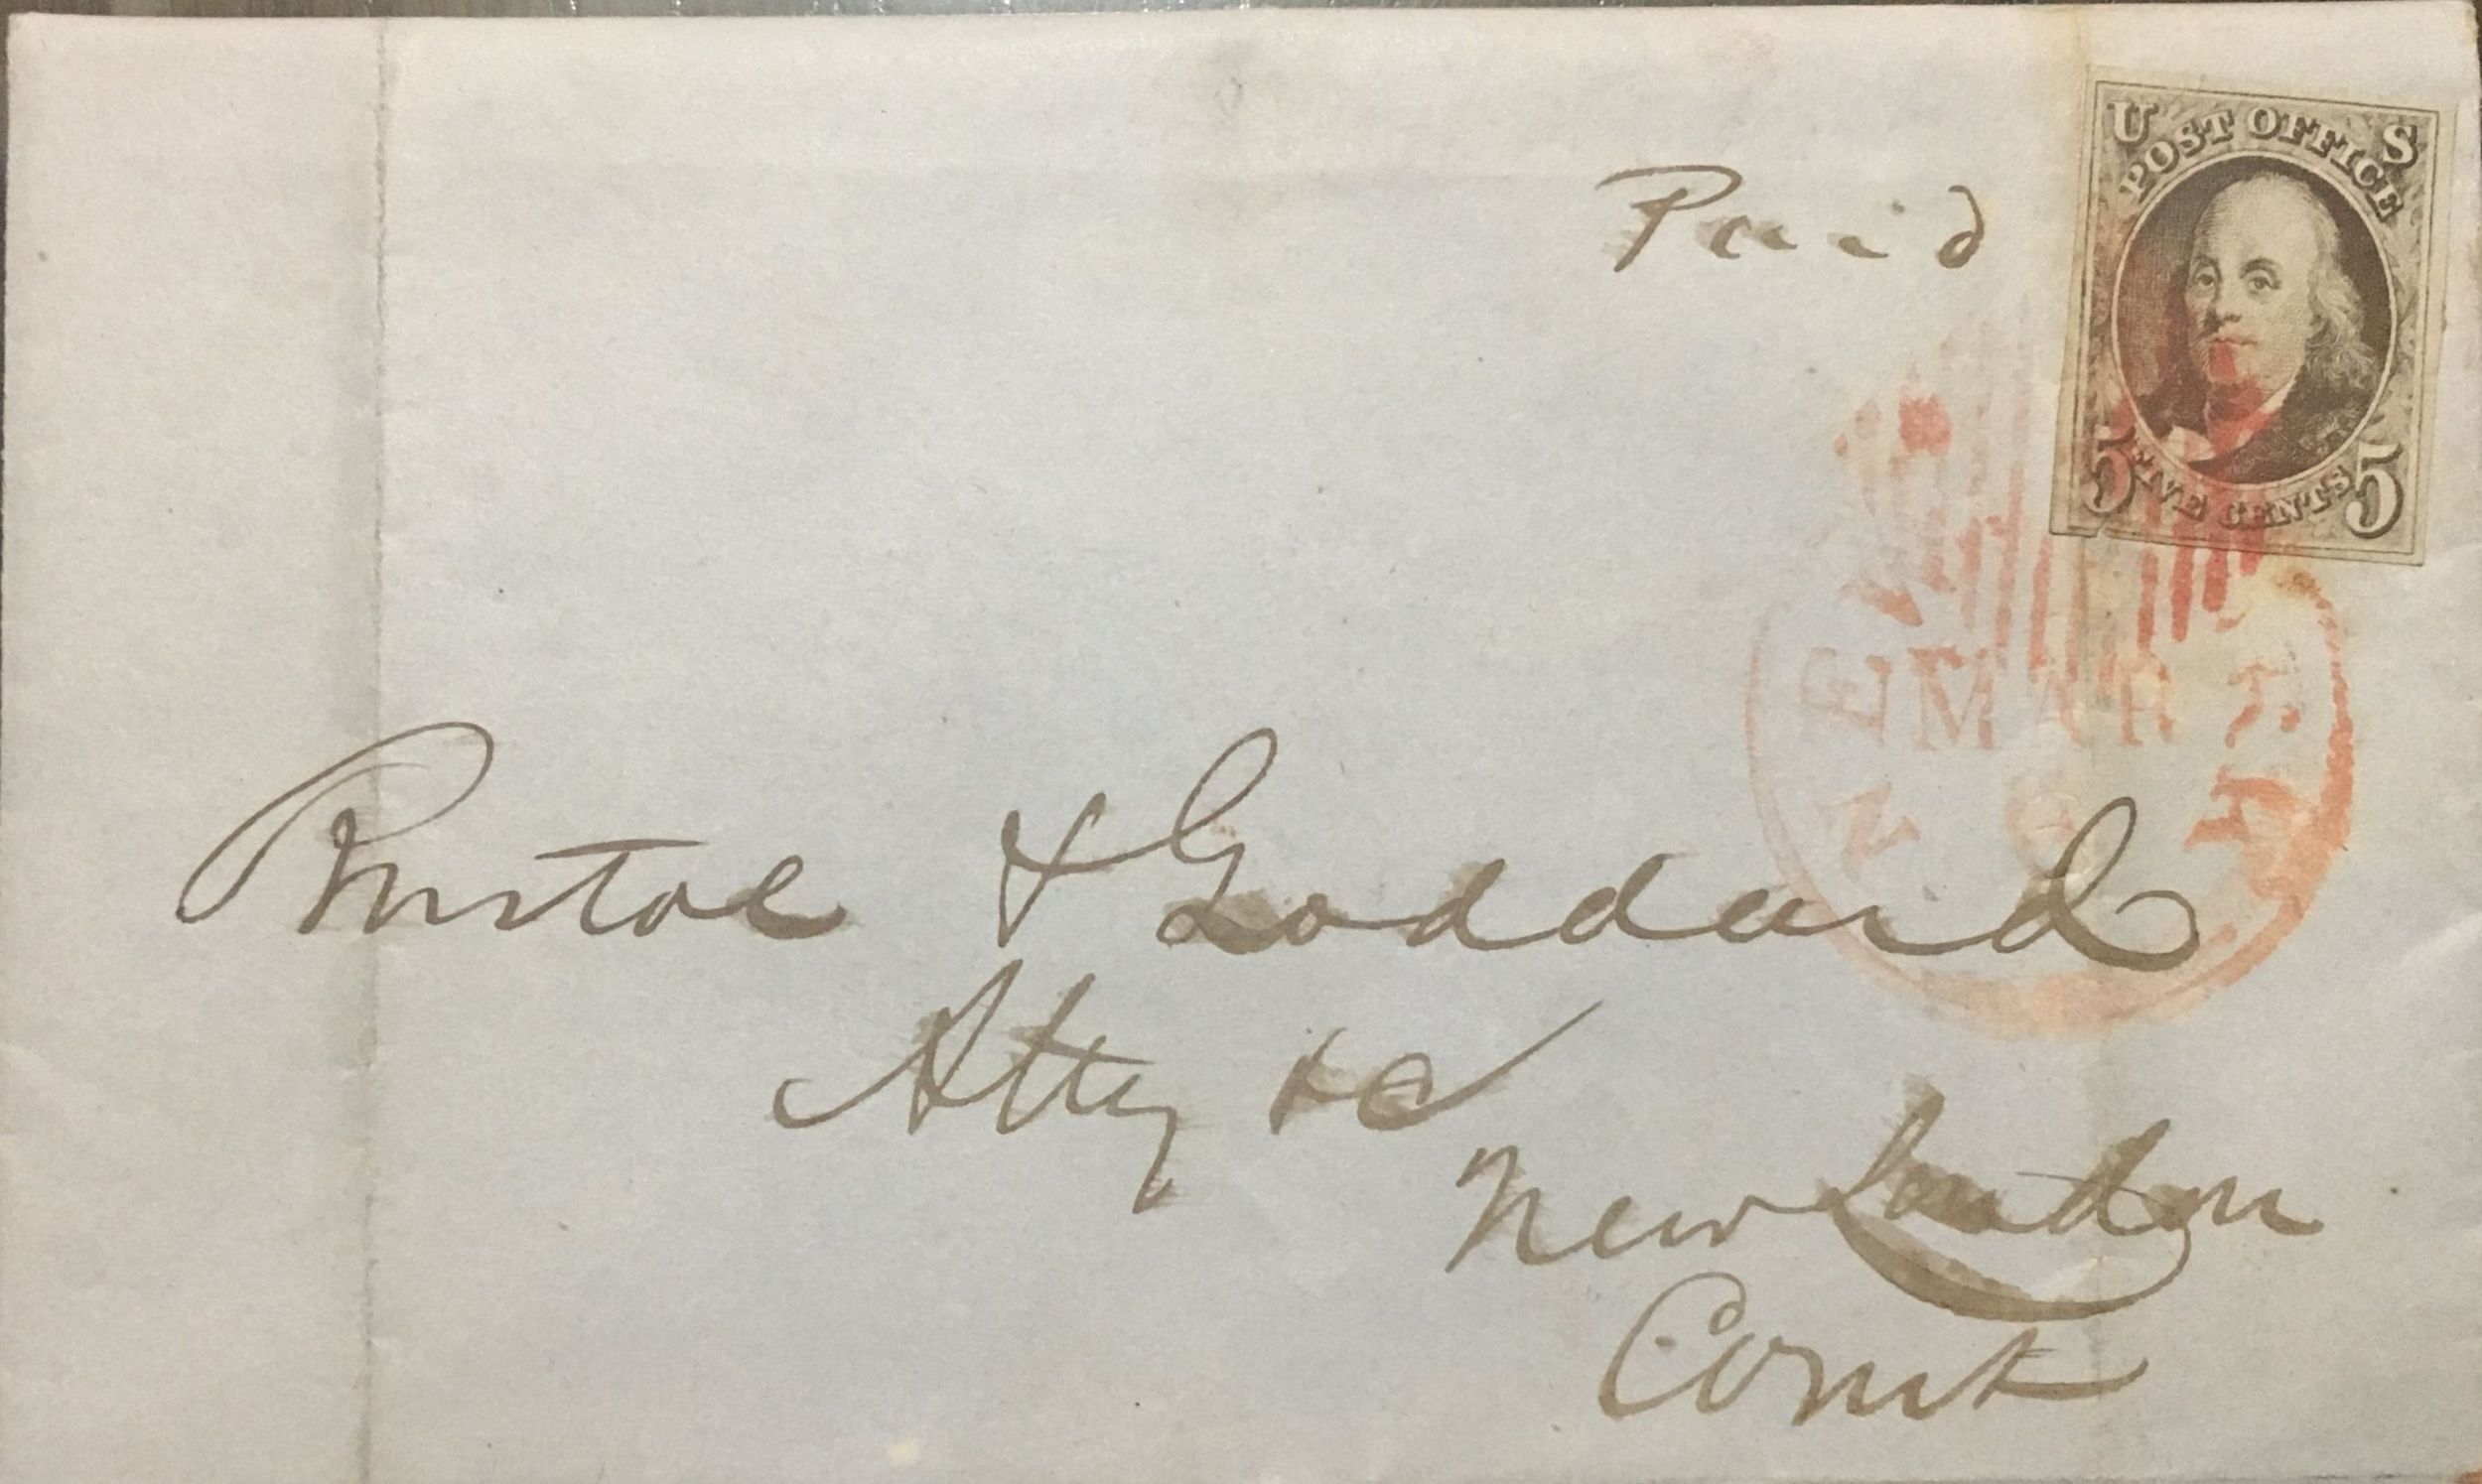 Paid
U S
POST OFFICE
5 FIVE CENTS 5
NEW
MAR
Bristol & Goddard
Atty &c
New London
Connt